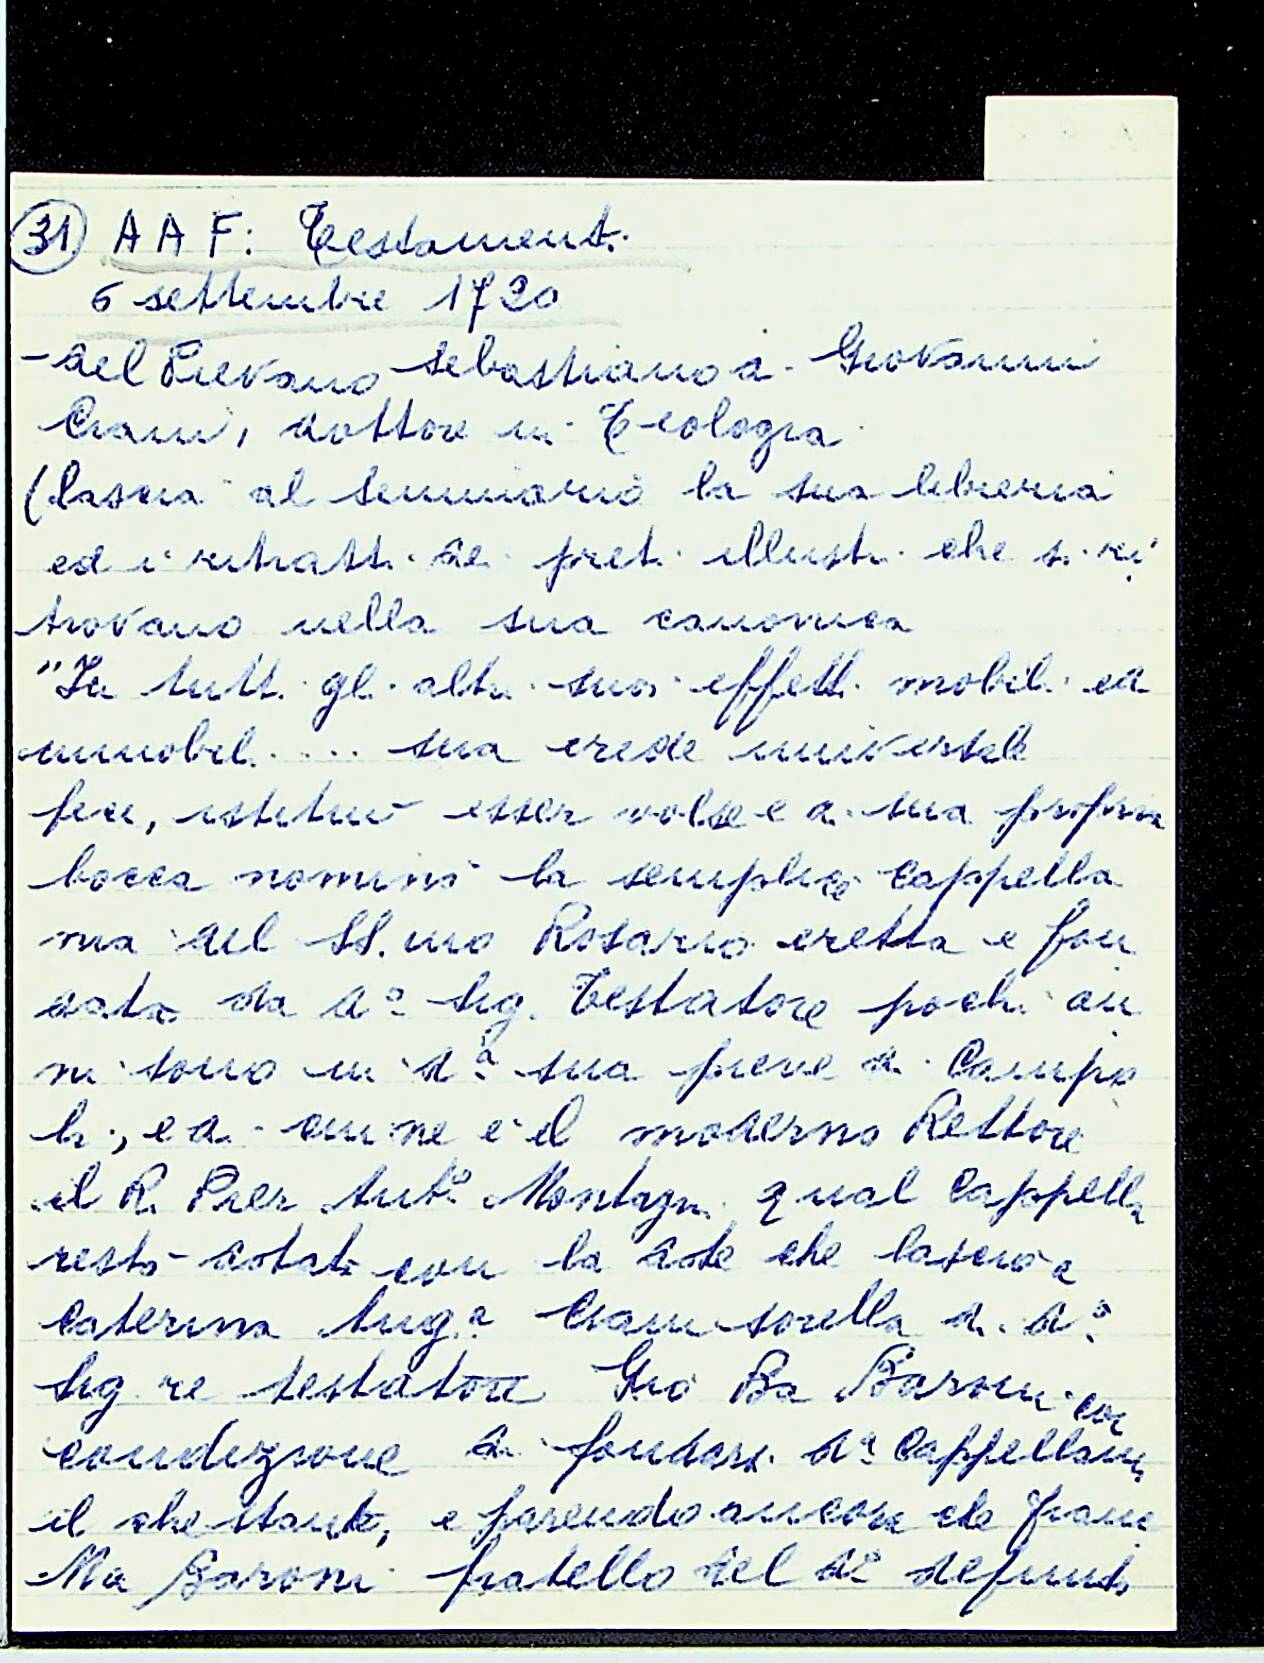 31 AAF: Testamenti
6 settembre 1720
- del Pievano Sebastiano di Giovanni
Ciani, dottore in Teologia
(lascia al seminario la sua libreria
ed i ritratti de preti illustri che si ri
trovano nella sua canonica
"In tutti gli altri suoi effetti mobili ed
immobili .... sua erede universale
feci, istituì esser volse e di sua propria
bocca nominò la semplice Cappella
nia del SS.mo Rosario eretta e fon
data da dº Sig. Testatore pochi an
ni sono in dª sua pieve di Campo
li, e di cui ne è il moderno Rettore
il R. Pier Antº Montagni qual Cappella
restò dotata con la dote che lasciò a
Caterina Ang.ª Ciani sorella di dº
Sig re testatore Gio Ba Baroni con
condizione di fondarsi dª Cappellania
il che stante, e parendo ancora che Fran
Ma Baroni fratello del dº defunto